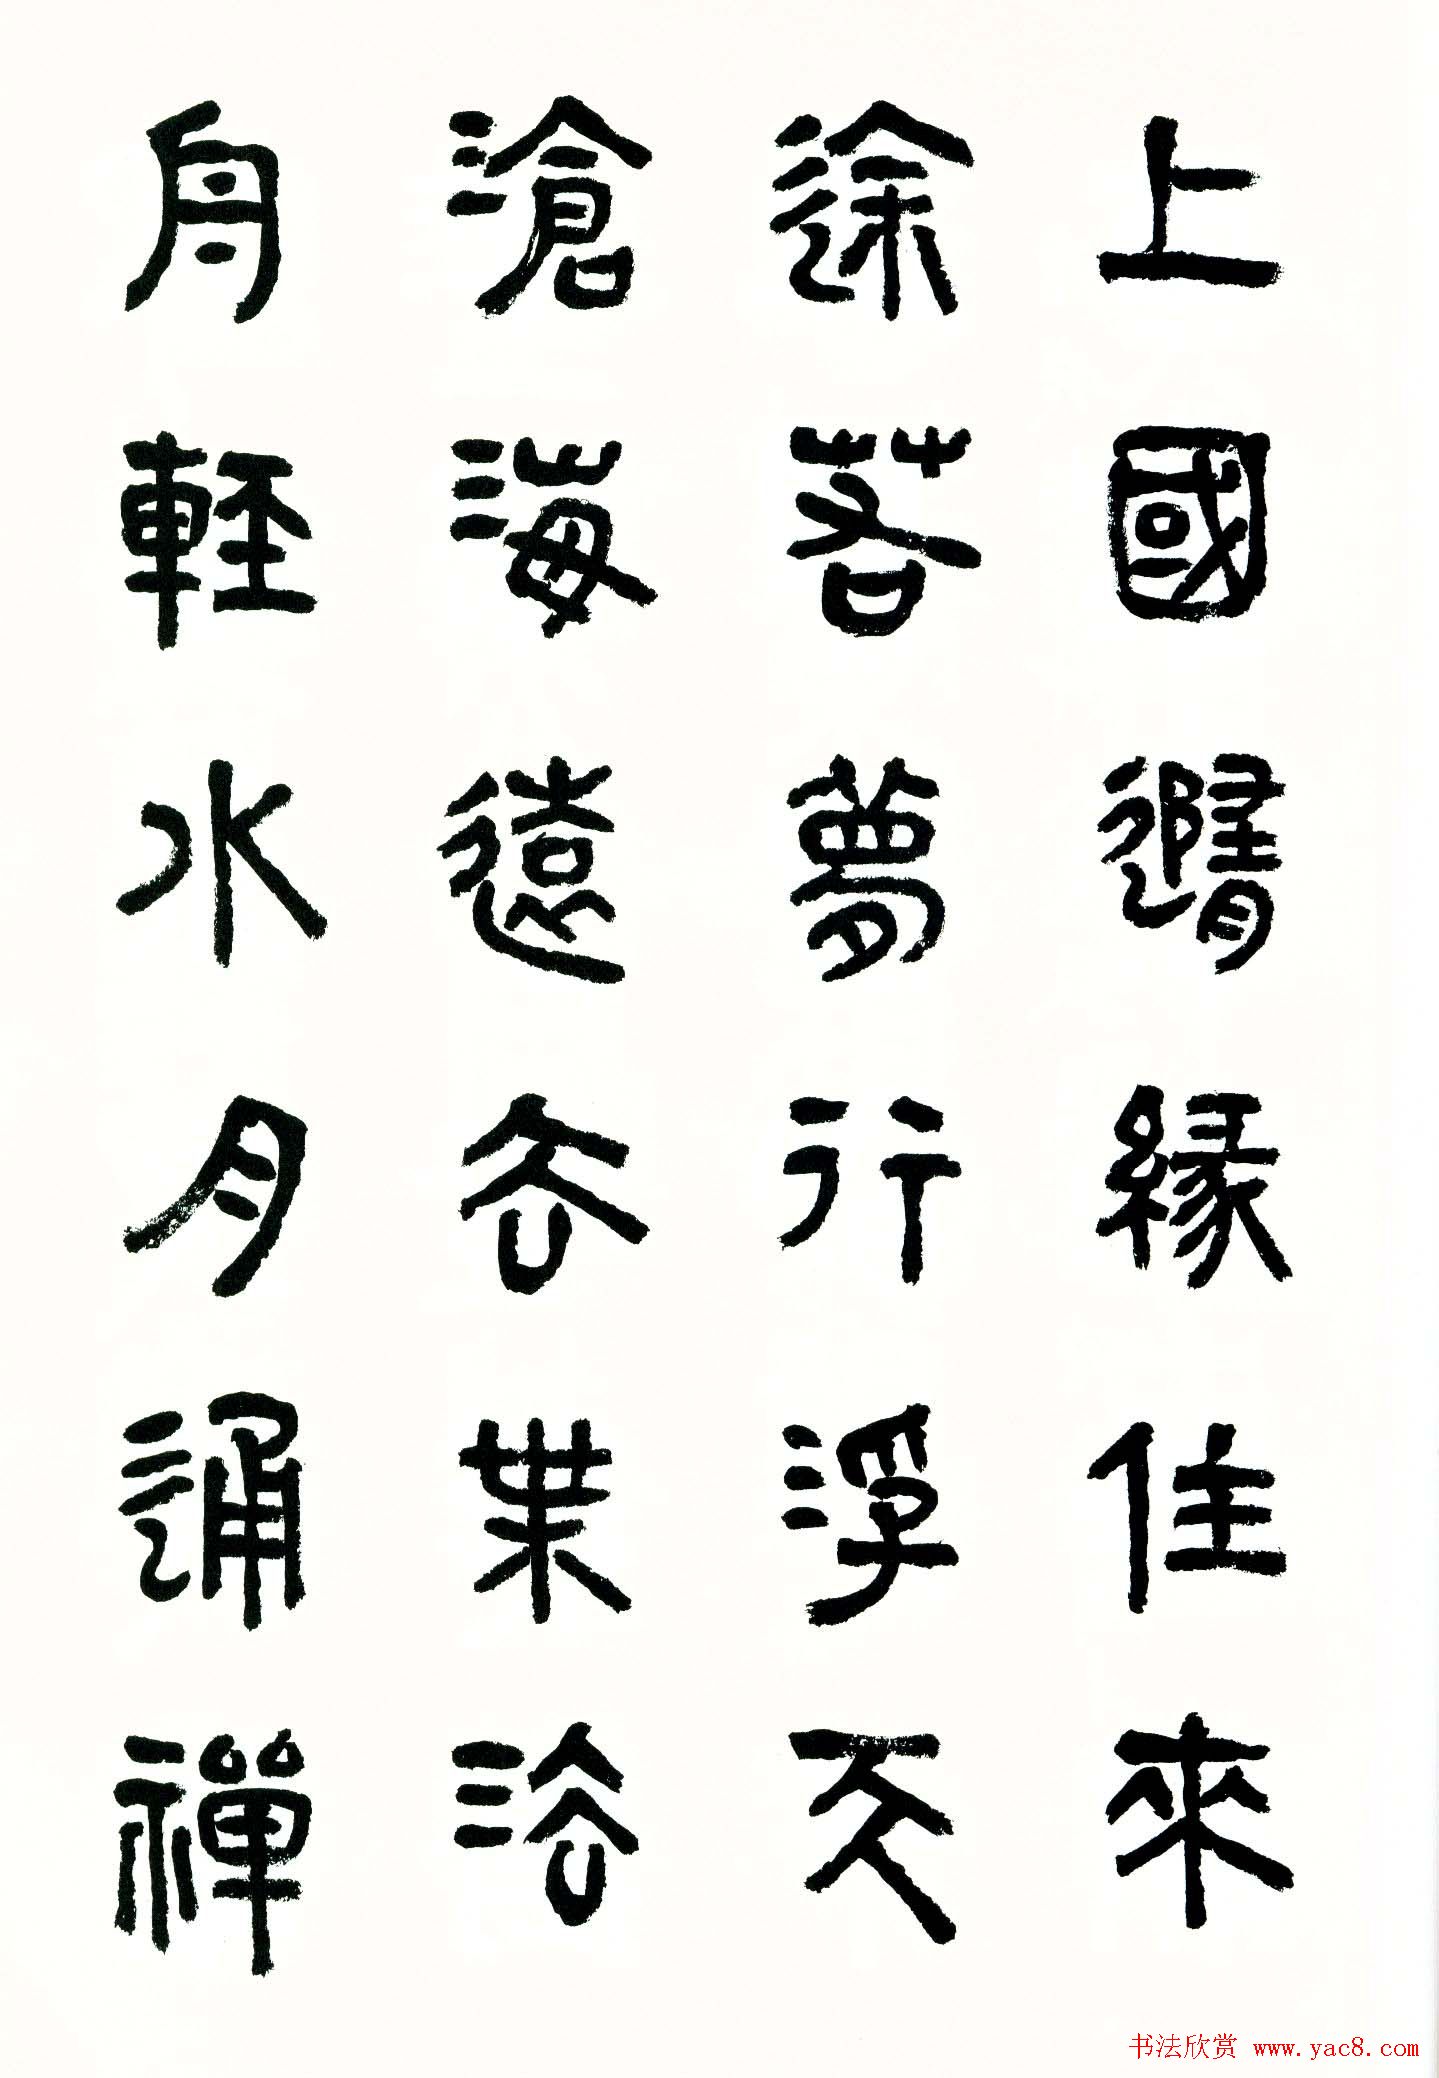 上國隨緣住來
途若夢行浮天
滄海遠去世法
舟輕水月通禪
书法欣赏 www.yac8.com